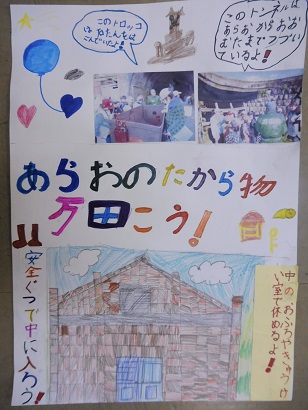 このトロッコ
は石たんをは
こんでいたよ！
このトンネルは
あらおからおお
むたまでつづい
ているよ！！
あらおのたから物
万田こう！
安全ぐつで中に入ろう！
中の、おふろやきゅうけ
い室で休めるよ！！